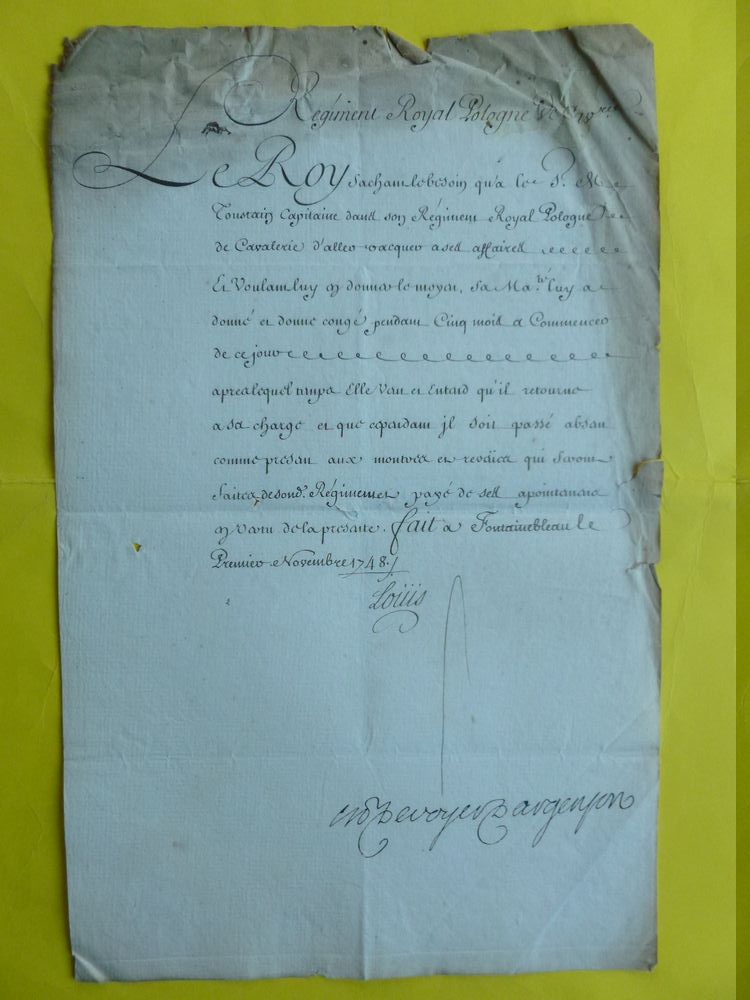 Regiment Royal Pologne
Le Roy sachant le besoin qu'a le S.r
Toustain Capitaine dans son Régiment Royal Pologne
de Cavalerie d'aller vacquer a ses affaires
Et Voulant luy en donner le moyen, Sa Ma.té luy a
donné et donne congé pendant Cinq mois a Commencer
de ce jour
apres lequel temps Elle Veut et Entend qu'il retourne
a sa charge et que cependant jl soit passé absent
comme present aux montres et reveües qui seront
faites de son d. Régiment et payé de ses apointemens
en Vertu de la presente. fait a Fontainebleau le
Premier Novembre 1748./
Loüis
De voyer D'argenson